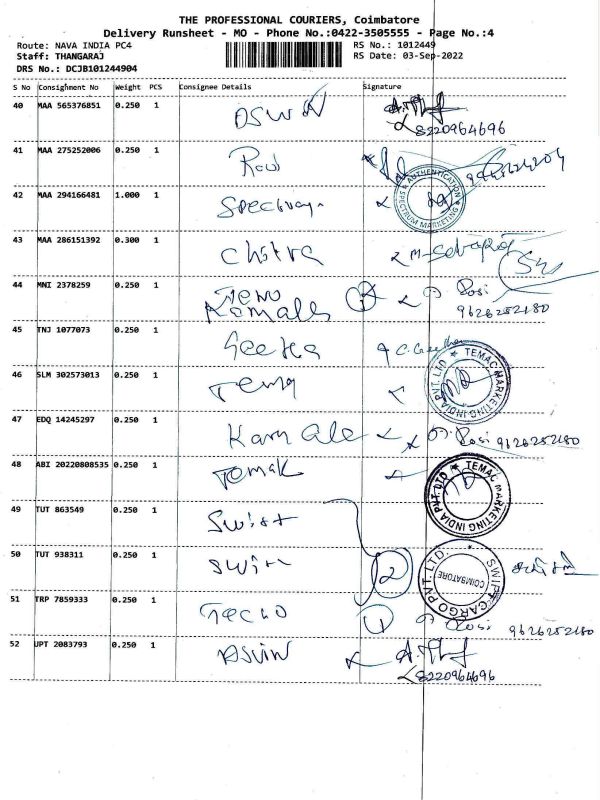 THE PROFESSIONAL COURIERS, Coimbatore
Delivery Runsheet - MO - Phone No.:0422-3505555 - Page No.:4
Route: NAVA INDIA PC4
RS No.: 1012449
Staff: THANGARAJ
RS Date: 03-Sep-2022
DRS No.: DCJB101244904
S No Consignment No Weight PCS Consignee Details Signature
40 MAA 565376851 0.250 1 ASWIN
8220964696
41 MAA 275252006 0.250 1 Ravi
42 MAA 294166481 1.000 1 AUTHENTICATION SPECTRUM MARKETING
43 MAA 286151392 0.300 1 Chitra
44 MNI 2378259 0.250 1 Kamale Rosi
9626252180
45 TNJ 1077073 0.250 1 Geetha
46 SLM 302573013 0.250 1 TEMAC MARKETING INDIA PVT. LTD
47 EDQ 14245297 0.250 1 Kamale Rosi 9626252180
48 ABI 20220808535 0.250 1 Temak TEMAC MARKETING INDIA PVT. LTD
49 TUT 863549 0.250 1 Swist
50 TUT 938311 0.250 1 2 SWIFT CARGO PVT. LTD. COIMBATORE
51 TRP 7859333 0.250 1 1 Rosi 9626252180
52 UPT 2083793 0.250 1 ASVIN
8220964696